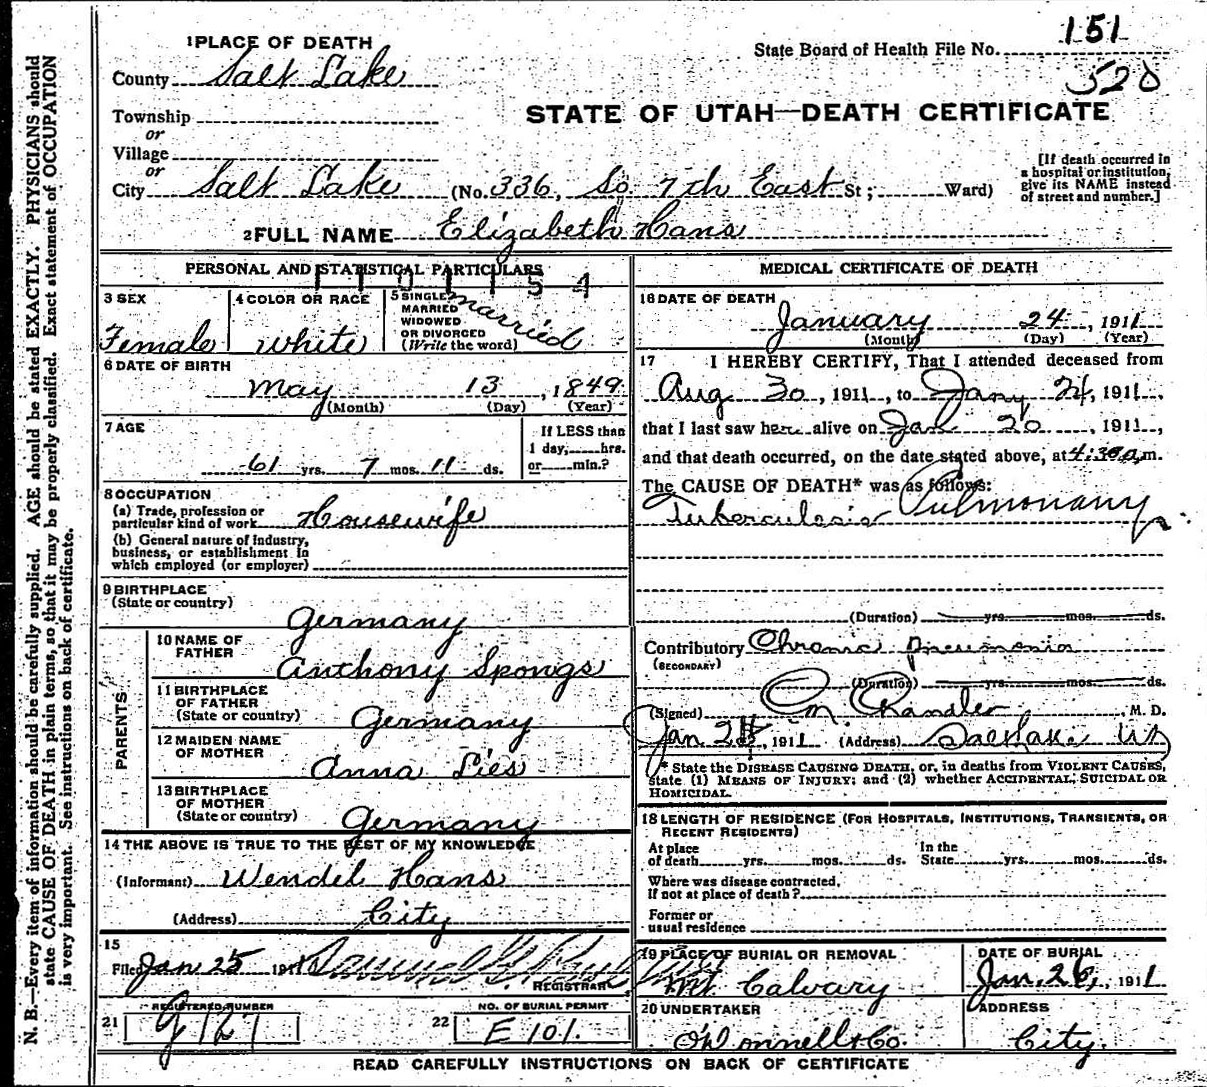 N. B.—Every item of information should be carefully supplied. AGE should be stated EXACTLY. PHYSICIANS should
state CAUSE OF DEATH in plain terms, so that it may be properly classified. Exact statement of OCCUPATION
is very important. See instructions on back of certificate.
1 PLACE OF DEATH
State Board of Health File No. 151
County Salt Lake
520
STATE OF UTAH—DEATH CERTIFICATE
Township
or
Village
or
City Salt Lake (No. 336, So. 7th East St; Ward)
[If death occurred in
a hospital or institution,
give its NAME instead
of street and number.]
2 FULL NAME Elizabeth Hans
PERSONAL AND STATISTICAL PARTICULARS
3 SEX
Female
4 COLOR OR RACE
White
5 SINGLE
MARRIED
WIDOWED
OR DIVORCED
(Write the word)
married
6 DATE OF BIRTH
May 13, 1849
(Month) (Day) (Year)
7 AGE
61 yrs. 7 mos. 11 ds.
If LESS than
1 day, hrs.
or min.?
8 OCCUPATION
(a) Trade, profession or
particular kind of work Housewife
(b) General nature of industry,
business, or establishment in
which employed (or employer)
9 BIRTHPLACE
(State or country)
Germany
PARENTS
10 NAME OF
FATHER
Anthony Spongs
11 BIRTHPLACE
OF FATHER
(State or country) Germany
12 MAIDEN NAME
OF MOTHER
Anna Lies
13 BIRTHPLACE
OF MOTHER
(State or country) Germany
14 THE ABOVE IS TRUE TO THE BEST OF MY KNOWLEDGE
(Informant) Wendel Hans
(Address) City
15
Filed Jan 25 191
REGISTRAR
21 REGISTERED NUMBER
G 127
22 NO. OF BURIAL PERMIT
E 101.
MEDICAL CERTIFICATE OF DEATH
16 DATE OF DEATH
January 24, 1911
(Month) (Day) (Year)
17 I HEREBY CERTIFY, That I attended deceased from
Aug 30, 1911, to Jany 24, 1911,
that I last saw her alive on Jan 20, 1911,
and that death occurred, on the date stated above, at 4:30 a.m.
The CAUSE OF DEATH* was as follows:
Tuberculosis Pulmonary
(Duration) yrs. mos. ds.
Contributory Chronic pneumonia
(SECONDARY)
(Duration) yrs. mos. ds.
(Signed) Chandler, M. D.
Jan, 1911 (Address) Salt Lake
* State the DISEASE CAUSING DEATH, or, in deaths from VIOLENT CAUSES,
state (1) MEANS OF INJURY; and (2) whether ACCIDENTAL, SUICIDAL OR
HOMICIDAL.
18 LENGTH OF RESIDENCE (FOR HOSPITALS, INSTITUTIONS, TRANSIENTS, OR
RECENT RESIDENTS)
At place
of death yrs. mos. ds.
In the
State yrs. mos. ds.
Where was disease contracted,
if not at place of death?
Former or
usual residence
19 PLACE OF BURIAL OR REMOVAL
Mt Calvary
DATE OF BURIAL
Jan. 26, 1911
20 UNDERTAKER
O'Donnell & Co.
ADDRESS
City.
READ CAREFULLY INSTRUCTIONS ON BACK OF CERTIFICATE